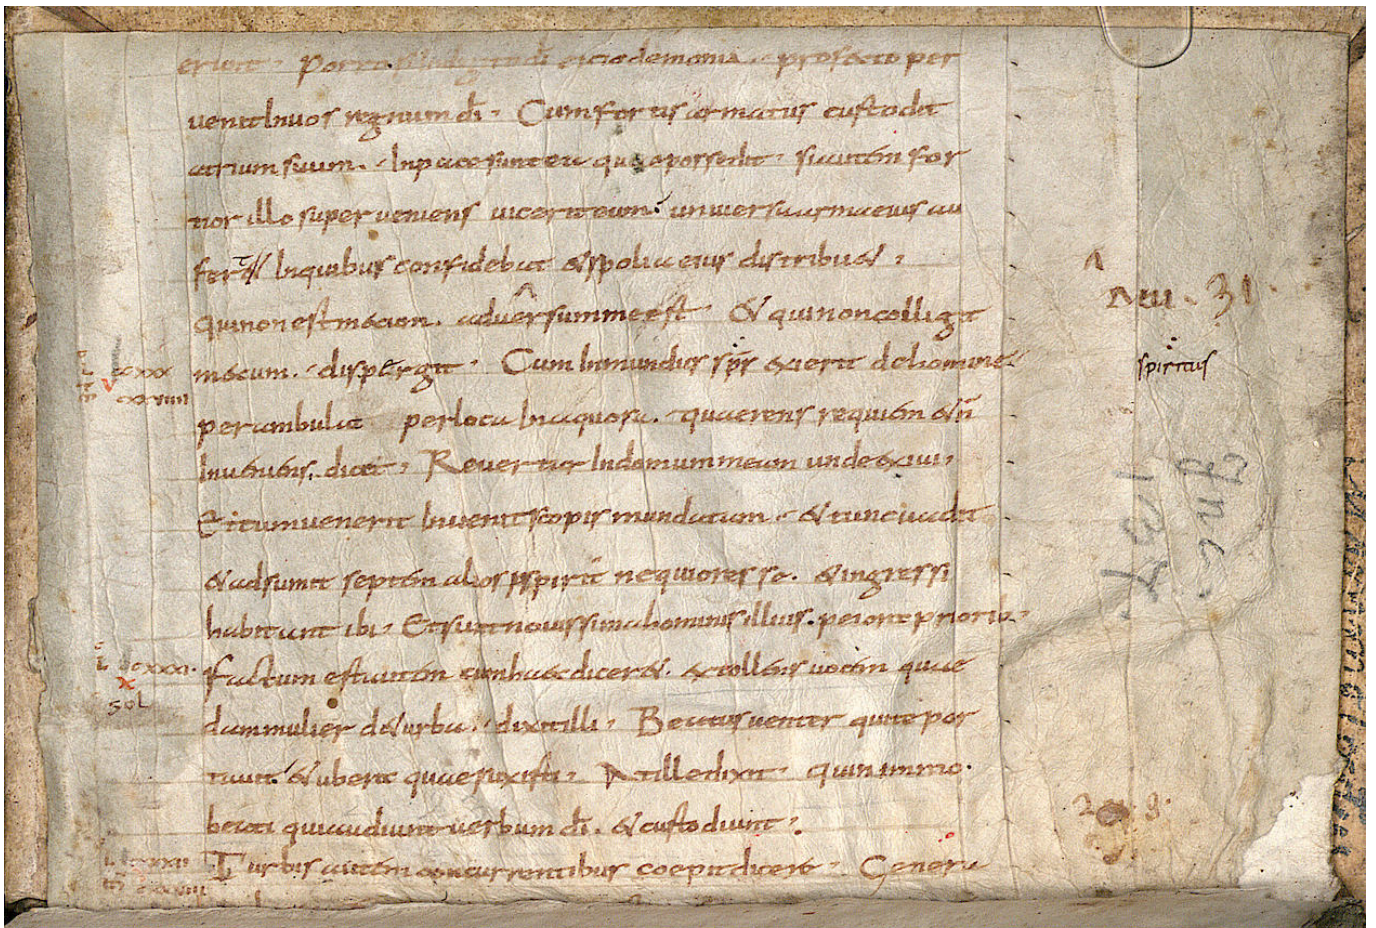 erunt. Porro si in digito dī eicio demonia. profecto per
uenit In uos regnum dī. Cum fortis armatus custodit
atrium suum. In pace sunt ea quae possedit. si autem for
tior illo superueniens uicerit eum. uniuersa arma eius au
fert In quibus confidebat & spolia eius distribu&.
Qui non est mecum. aduersum me est & qui non colligit
mecum. dispergit. Cum Inmundus sp̄s exierit de homine
perambulat per loca Inaquosa. quaerens requiem & n̄
Inueniens. dicit. Reuertar In domum meam unde exiui.
Et cum uenerit Inuenit scopis mundatam. & tunc uadit
& adsumit septem alios sp̄irit nequiores se. & ingressi
habitant ibi. Et sunt nouissima hominis illius. peiora priorib.
Factum est autem cum haec dicer&. extollens uocem quae
dam mulier de turba. dixit illi. Beatus uenter qui te por
tauit. & ubera quae suxisti. At ille dixit. quin immo.
beati qui audiunt uerbum dī. & custodiunt.
Turbis autem concurrentibus coepit dicere. Genera
spiritus
sol
Luc